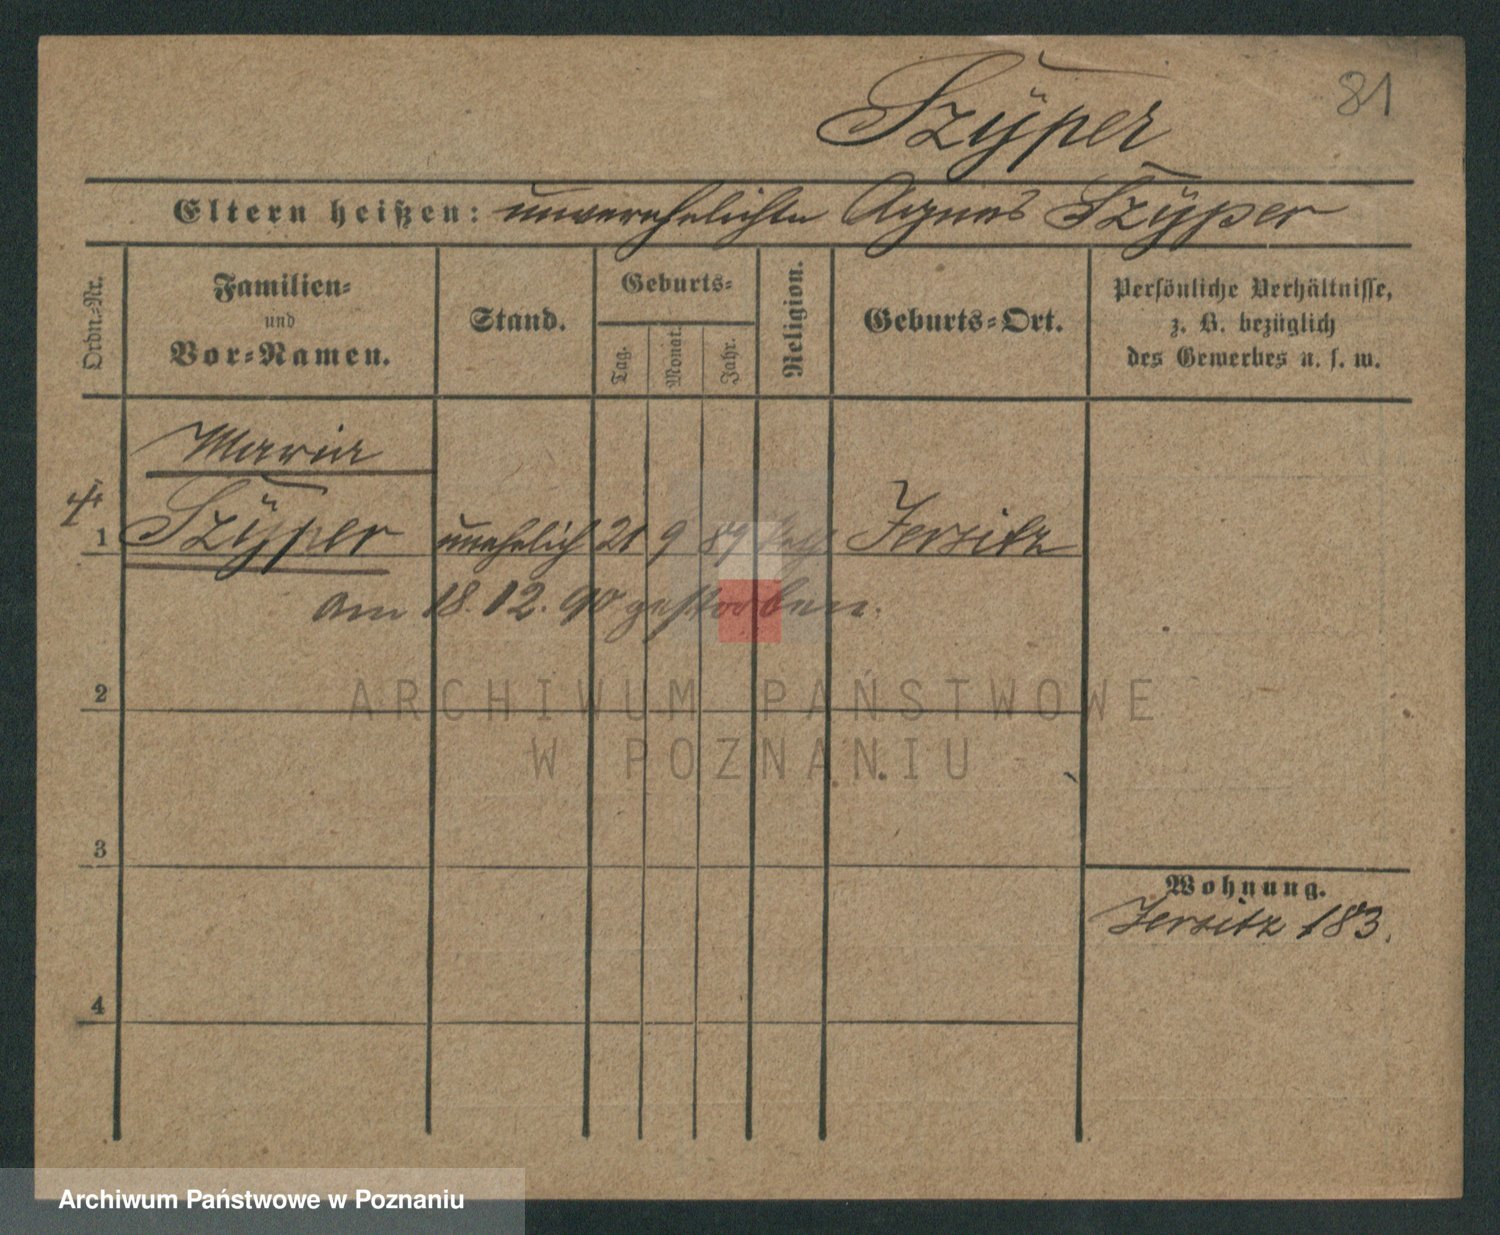 81
Szÿper
Eltern heißen: unverehelichte Agnes Szÿper
Ordn.-Nr.
Familien-
und
Vor-Namen.
Stand.
Geburts-
Tag.
Monat.
Jahr.
Religion.
Geburts-Ort.
Persönliche Verhältnisse,
z. B. bezüglich
des Gewerbes u. s. w.
Maria
1 Szÿper unehelich 21 9 89 kath Jersitz
am 18. 12. 90 gestorben.
2
ARCHIWUM PAŃSTWOWE
W POZNANIU
3
Wohnung.
Jersitz 183.
4
Archiwum Państwowe w Poznaniu